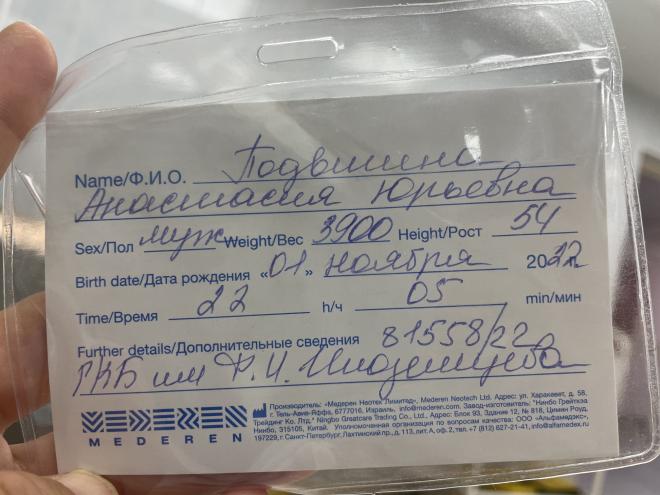 Name/Ф.И.О. Подвишина
Анастасия Юрьевна
Sex/Пол муж Weight/Вес 3900 Height/Рост 54
Birth date/Дата рождения «01» ноября 2022г.
Time/Время 22 h/ч 05 min/мин
Further details/Дополнительные сведения 81558/22
ГКБ им Ф.И. Иноземцева
MEDEREN
Производитель: «Медерен Неотех Лимитед», Mederen Neotech Ltd. Адрес: ул. Харакевет, д. 58,
г. Тель-Авив-Яффа, 6777016, Израиль, info@mederen.com. Завод-изготовитель: "Нинбо Грейткэа
Трейдинг Ко. Лтд." Ningbo Greatcare Trading Co., Ltd., Адрес: Блок 93, Здание 12, № 818, Цимин Роуд,
Нинбо, 315105, Китай. Уполномоченная организация по вопросам качества: ООО «Альфамедэкс»,
197229, г. Санкт-Петербург, Лахтинский пр., д. 113, лит. А, оф. 2, тел. +7 (812) 627-21-41, info@alfamedex.ru